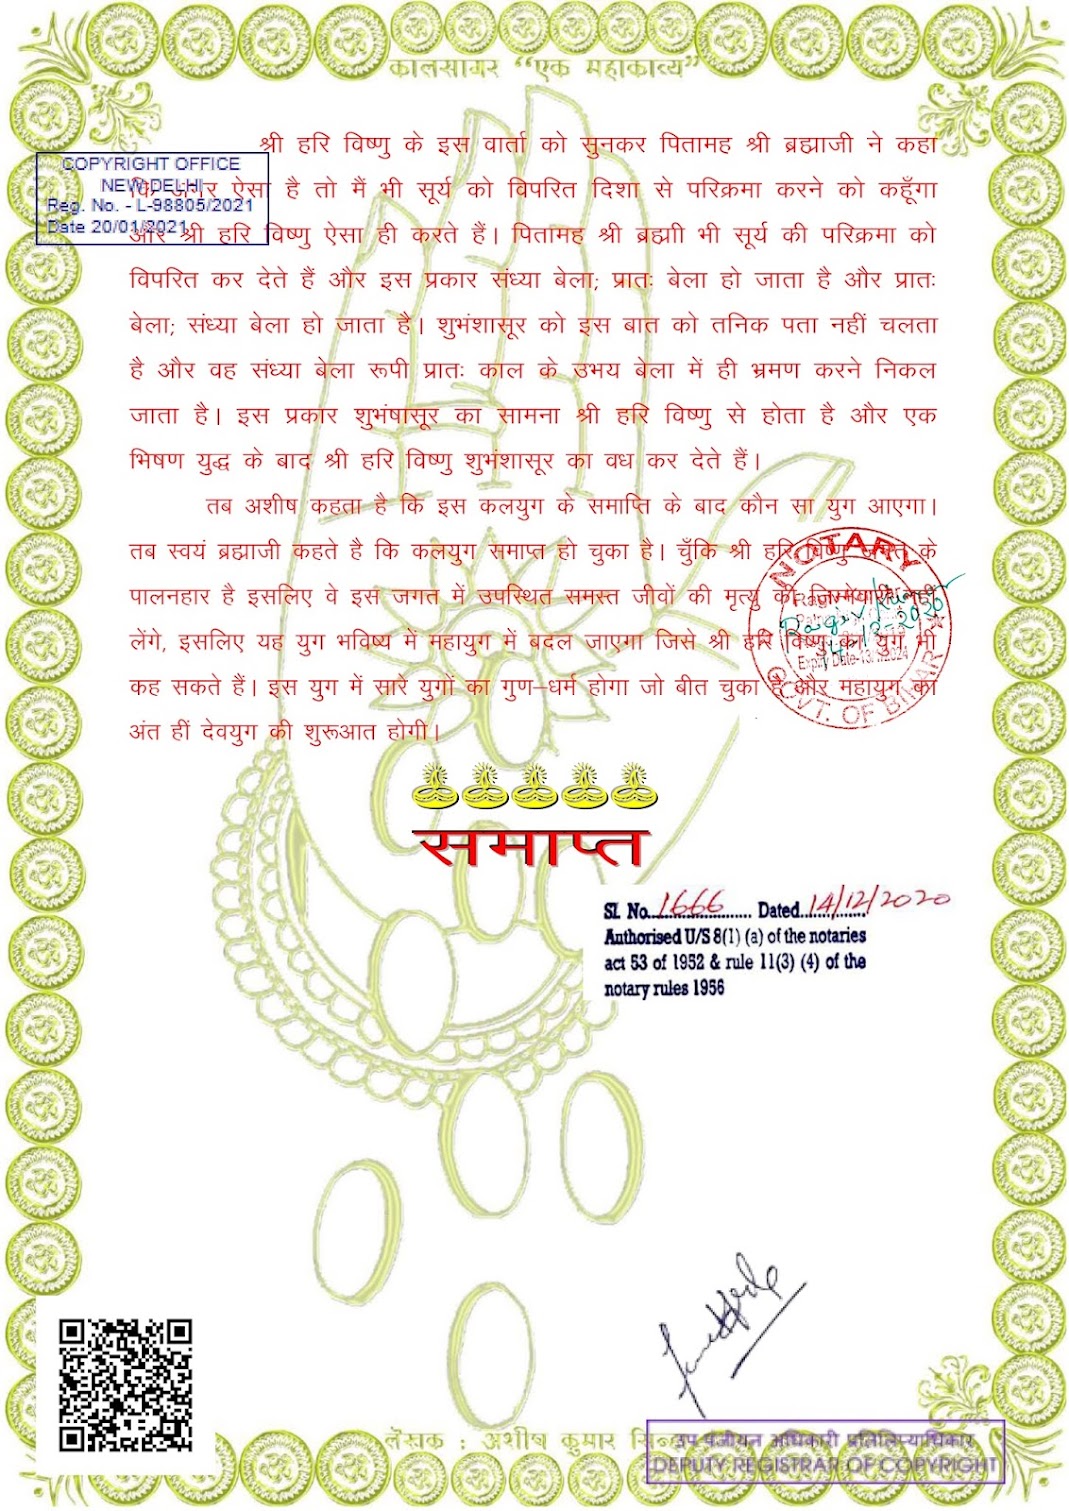 कालसागर “एक महाकाव्य”
श्री हरि विष्णु के इस वार्ता को सुनकर पितामह श्री ब्रह्माजी ने कहा
कि अगर ऐसा है तो मैं भी सूर्य को विपरित दिशा से परिक्रमा करने को कहूँगा
और श्री हरि विष्णु ऐसा ही करते हैं। पितामह श्री ब्रह्मी भी सूर्य की परिक्रमा को
विपरित कर देते हैं और इस प्रकार संध्या बेला; प्रातः बेला हो जाता है और प्रातः
बेला; संध्या बेला हो जाता है। शुभंशासूर को इस बात को तनिक पता नहीं चलता
है और वह संध्या बेला रूपी प्रातः काल के उभय बेला में ही भ्रमण करने निकल
जाता है। इस प्रकार शुभंषासूर का सामना श्री हरि विष्णु से होता है और एक
भिषण युद्ध के बाद श्री हरि विष्णु शुभंशासूर का वध कर देते हैं।
तब अशीष कहता है कि इस कलयुग के समाप्ति के बाद कौन सा युग आएगा।
तब स्वयं ब्रह्माजी कहते है कि कलयुग समाप्त हो चुका है। चुँकि श्री हरि विष्णु जगत के
पालनहार है इसलिए वे इस जगत में उपस्थित समस्त जीवों की मृत्यु की जिम्मेवारी नहीं
लेंगे, इसलिए यह युग भविष्य में महायुग में बदल जाएगा जिसे श्री हरि विष्णु का युग भी
कह सकते हैं। इस युग में सारे युगों का गुण–धर्म होगा जो बीत चुका है और महायुग का
अंत हीं देवयुग की शुरूआत होगी।
समाप्त
COPYRIGHT OFFICE
NEW DELHI
Reg. No. - L-98805/2021
Date 20/01/2021
NOTARY
Expiry Date
GOVT. OF BIHAR
Sl. No. 1666 Dated 14/12/2020
Authorised U/S 8(1) (a) of the notaries
act 53 of 1952 & rule 11(3) (4) of the
notary rules 1956
लेखक : अशीष कुमार
उप पंजीयन अधिकारी प्रतिलिप्याधिकार
DEPUTY REGISTRAR OF COPYRIGHT